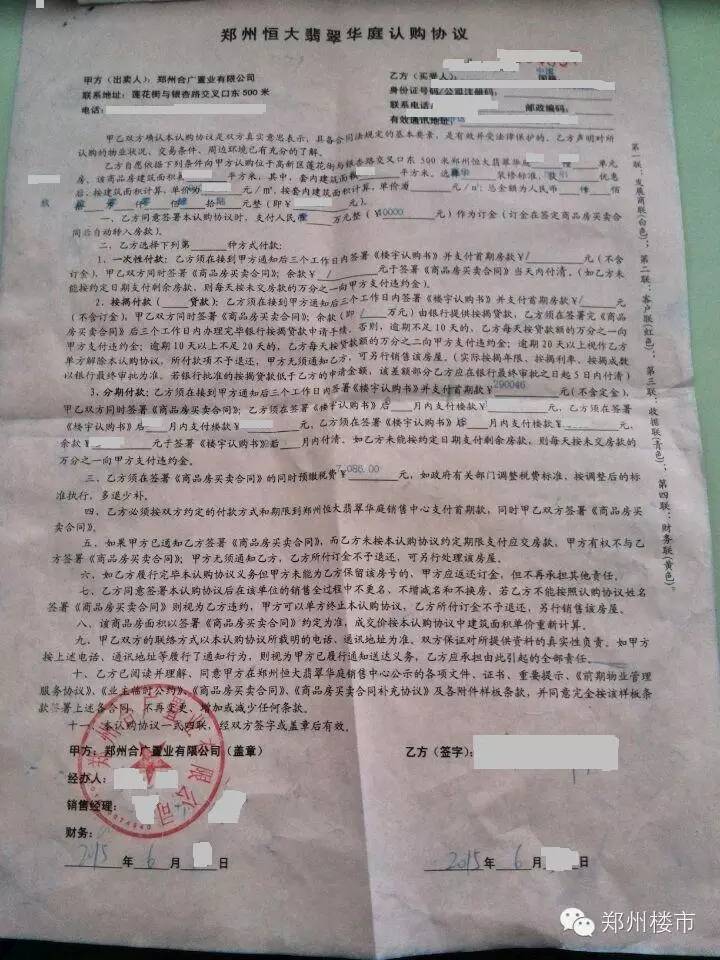 郑州恒大翡翠华庭认购协议
甲方（出卖人）：郑州合广置业有限公司
联系地址：莲花街与银杏路交叉口东 500 米
电话：
乙方（买受人）：
身份证号码/公司注册码：
联系电话： 邮政编码：
有效通讯地址：
甲乙双方确认本认购协议是双方真实意思表示，具备合同法规定的基本要素，是有效并受法律保护的。乙方声明对所
认购的物业状况、交易条件、周边环境已有充分的了解。
乙方自愿依据下列条件向甲方认购位于高新区莲花街与银杏路交叉口东 500 米郑州恒大翡翠华庭 幢 单元
房，该商品房建筑面积 平方米，其中，套内建筑面积 平方米。选 装修标准， 优惠
后，按建筑面积计算，单价为 元/㎡，按套内建筑面积计算，单价为 元/㎡；总金额为人民币 佰
拾 万 仟 佰 拾 元整（即￥ 元）。
一、乙方同意签署本认购协议时，支付人民币 万元整（￥10000 元）作为定金（订金在签定商品房买卖合
同后自动转入房款）。
二、乙方选择下列第 种方式付款：
1. 一次性付款：乙方须在接到甲方通知后三个工作日内签署《楼宇认购书》并支付首期房款￥/ 元（不含
订金），甲乙双方同时签署《商品房买卖合同》；余款￥ / 元于签署《商品房买卖合同》当天内付清。（如乙方未
能按约定日期支付剩余房款，则每天按未交房款的万分之一向甲方支付违约金）。
2. 按揭付款（ 贷款）：乙方须在接到甲方通知后三个工作日内签署《楼宇认购书》并支付首期房款￥/ 元
（不含订金），甲乙双方同时签署《商品房买卖合同》；余款（即 / 万元）由银行提供按揭贷款，乙方须在签署完《商品
房买卖合同》后三个工作日内办理完毕银行按揭贷款申请手续。否则，逾期不足 10 天的，乙方每天按贷款额的万分之一向
甲方支付违约金；逾期 10 天以上不足 20 天的，乙方每天按贷款额的万分之二向甲方支付违约金；逾期 20 天以上视作乙方
单方解除本认购协议，所付款项不予退还，甲方无须通知乙方，可另行销售该房屋。（实际按揭年限、按揭利率、按揭成数
以银行最终审批为准。若银行批准的按揭贷款低于乙方的申请金额，该差额部分乙方应在银行最终审批之日起 5 日内付清）
3. 分期付款：乙方须在接到甲方通知后三个工作日内签署《楼宇认购书》并支付首期房款￥290046 元（不含定金），
甲乙双方同时签署《商品房买卖合同》；乙方须在签署《楼宇认购书》后 月内支付楼款￥ 元，乙方须在签署
《楼宇认购书》后 月内支付楼款￥ 元，乙方须在签署《楼宇认购书》后 月内支付楼款￥ 元，
余款￥ 元于签署《楼宇认购书》后 月内付清。如乙方未能按约定日期支付剩余房款，则每天按未交房款的
万分之一向甲方支付违约金。
三、乙方须在签署《商品房买卖合同》的同时预缴税费￥7,086.00 元，如政府有关部门调整税费标准，按调整后的标
准执行，多退少补。
四、乙方必须按双方约定的付款方式和期限到郑州恒大翡翠华庭销售中心支付首期款，同时甲乙双方签署《商品房买
卖合同》。
五、如果甲方已通知乙方签署《商品房买卖合同》，而乙方未按本认购协议约定期限支付应交房款，甲方有权不与乙
方签署《商品房买卖合同》；甲方无须通知乙方，乙方所付订金不予退还，可另行处理该房屋。
六、如乙方履行完毕本认购协议义务但甲方未能为乙方保留该房号的，甲方应返还订金，但不再承担其他责任。
七、乙方同意签署本认购协议后在该单位的销售全过程中不更名、不增减名和不换房。若乙方不能按照认购协议姓名
签署《商品房买卖合同》则视为乙方违约，甲方可以单方终止本认购协议，乙方所付订金不予退还，另行销售该房屋。
八、该商品房面积以签署《商品房买卖合同》约定为准，成交价按本认购协议中建筑面积单价重新计算。
九、甲乙双方的联络方式以本认购协议所载明的电话、通讯地址为准。双方保证对所提供资料的真实性负责。如甲方
按上述电话、通讯地址等履行了通知行为，则视为甲方已履行通知送达义务，乙方应承担由此引起的全部责任。
十、乙方已阅读并理解、同意甲方在郑州恒大翡翠华庭销售中心公示的各项文件、证书、重要提示、《前期物业管理
服务协议》、《业主临时公约》、《商品房买卖合同》、《商品房买卖合同补充协议》及各附件样板条款，并同意完全按该样板条
款签署上述各合同，不再变更、增加或减少任何条款。
十一、本认购协议一式四联，经双方签字或盖章后有效。
甲方：郑州合广置业有限公司（盖章）
经办人：
销售经理：
财务：
2015 年 6 月 日
乙方（签字）：
2015 年 6 月 日
第一联：发展商联(白色)；第二联：客户联(红色)；第三联：收据联(青色)；第四联：财务联(黄色)。
郑州楼市